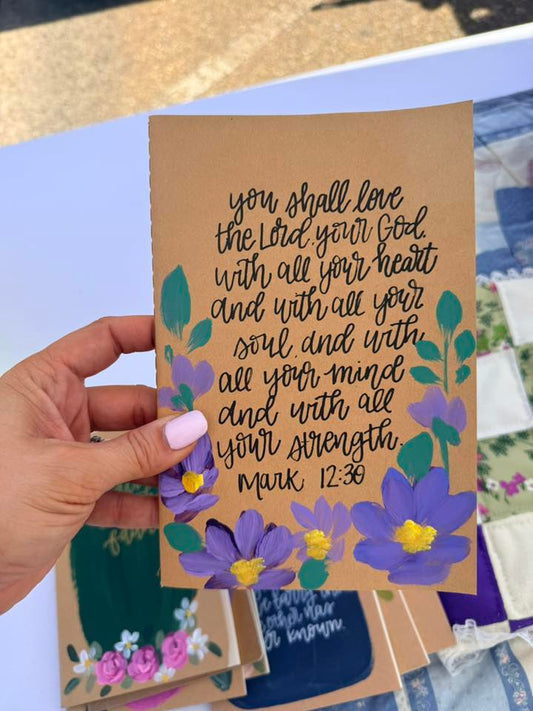 you shall love
the Lord your God.
with all your heart
and with all your
soul, and with
all your mind
and with all
your strength.
Mark 12:30
has
known.